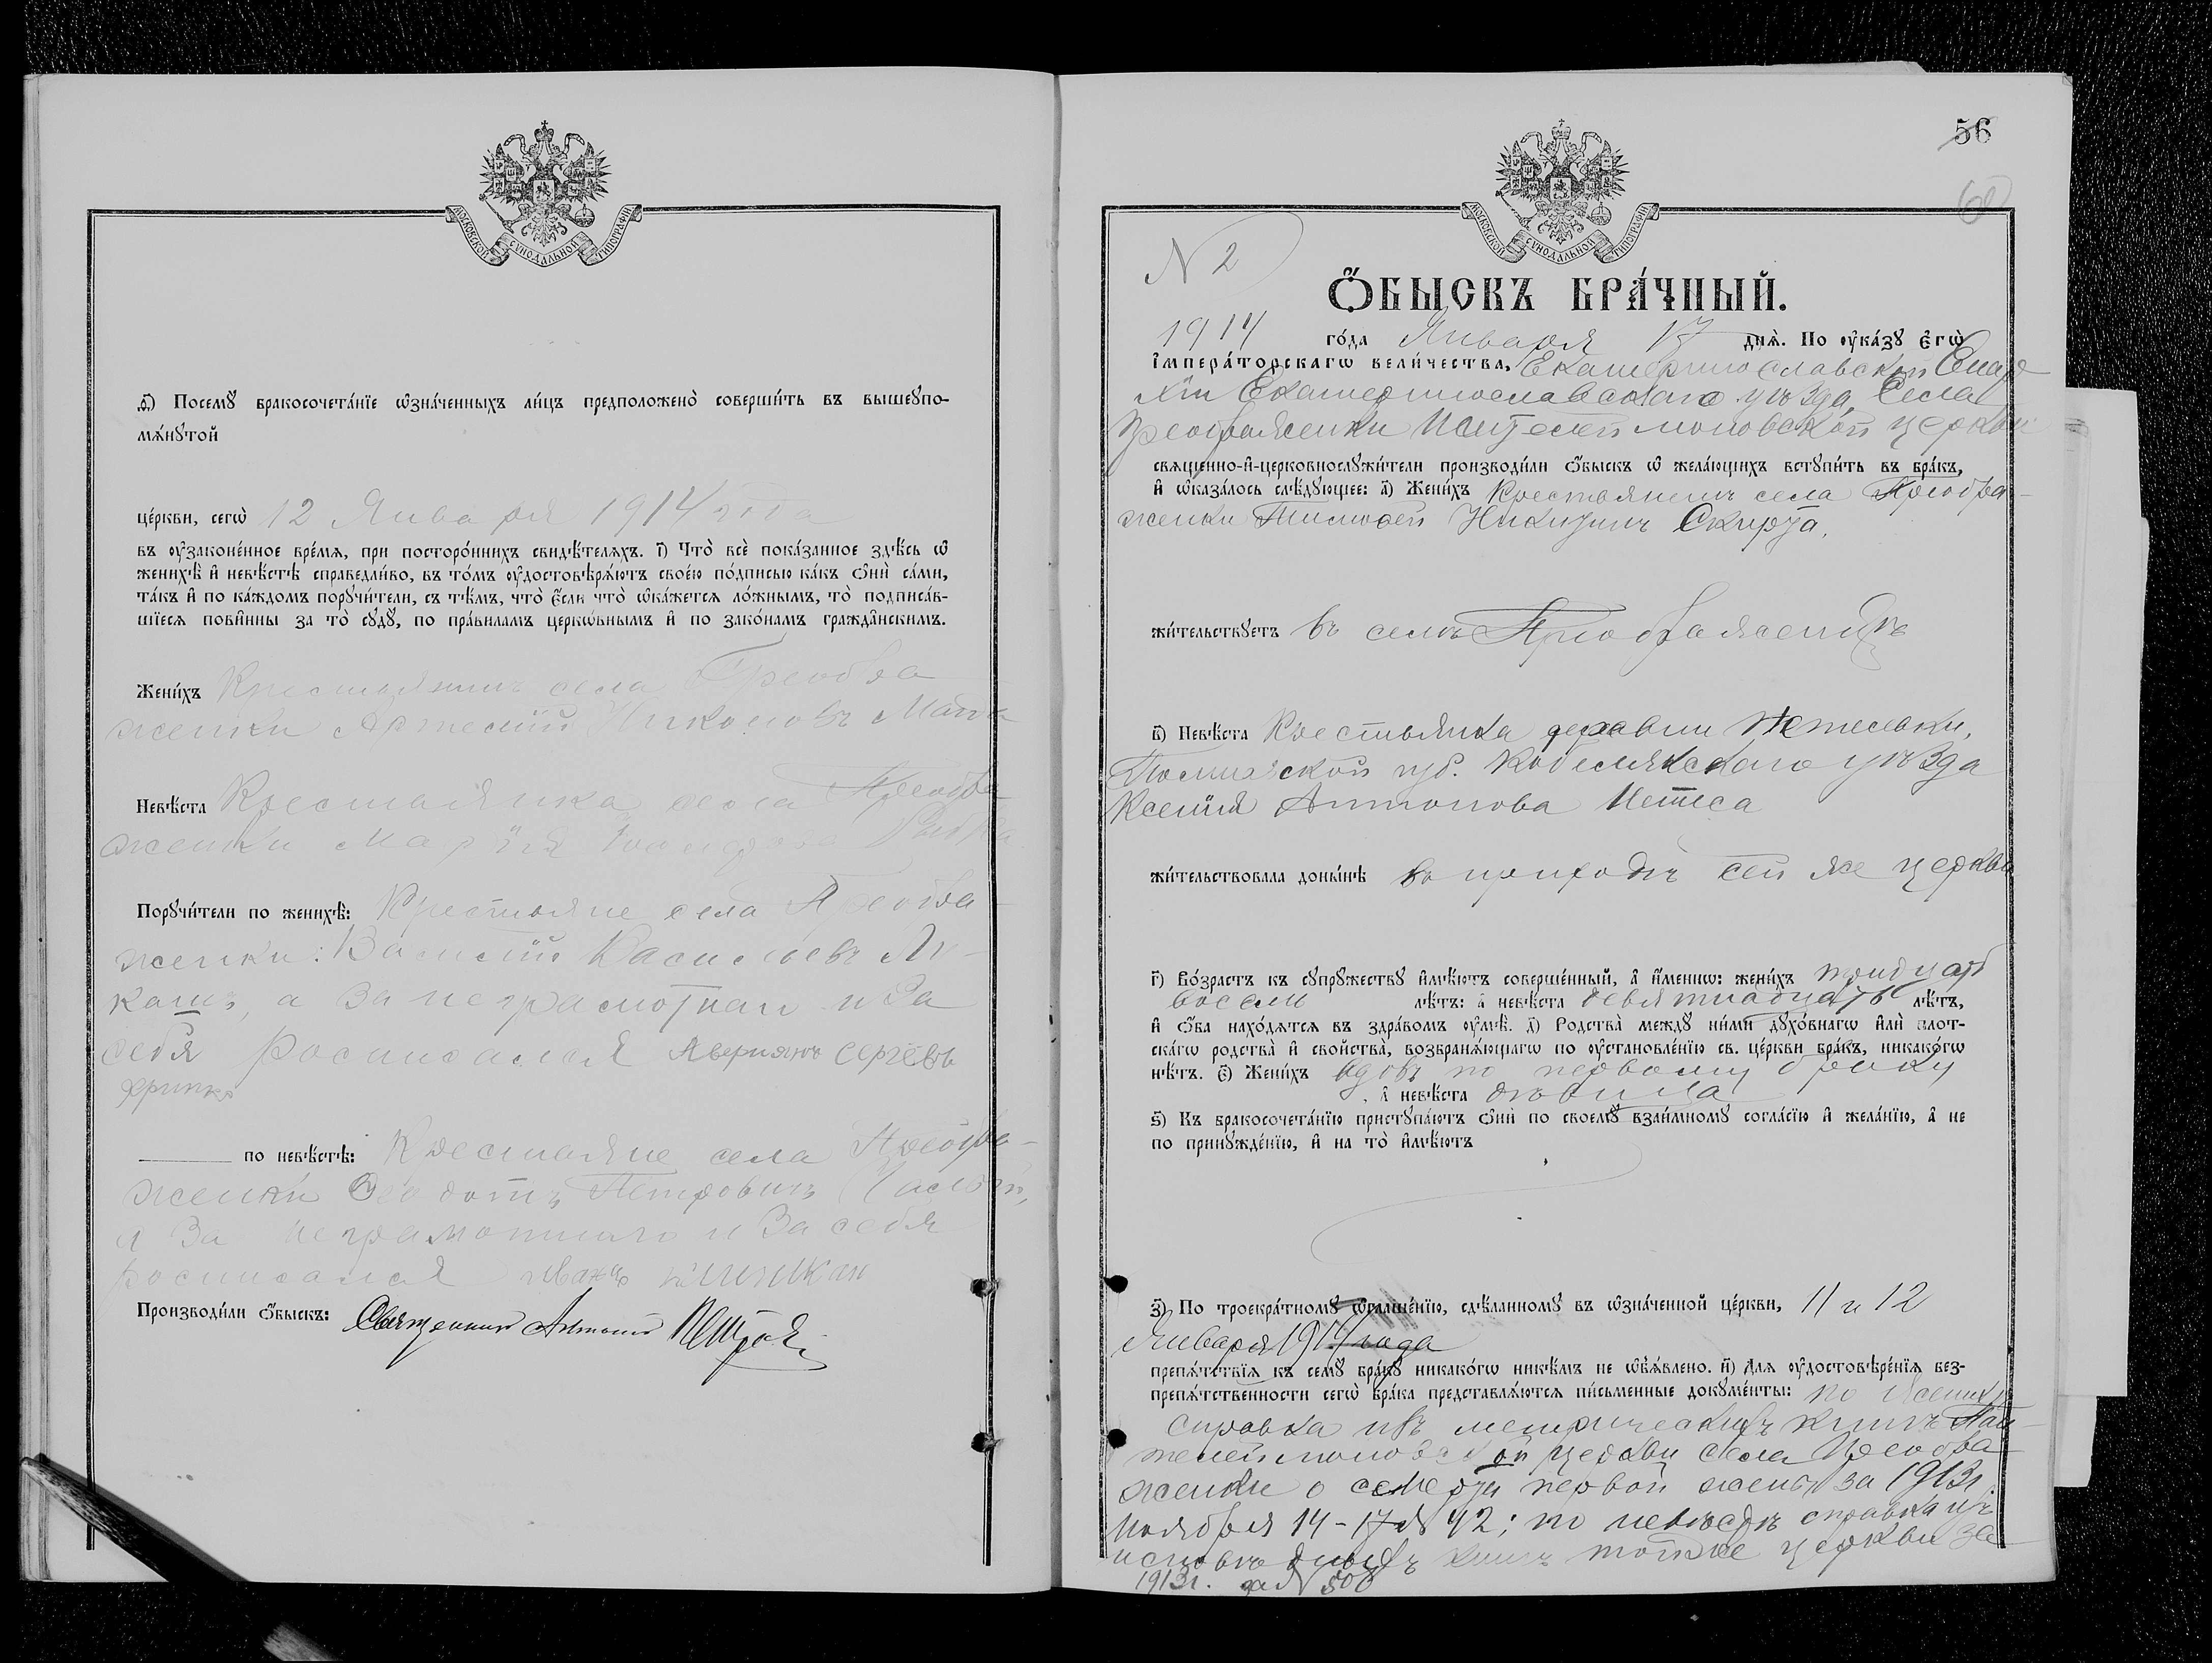 МОСКОВСКОЙ СѴНОДАЛЬНОЙ ТИПОГРАФІИ
ѳ҃) Посемꙋ бракосочета́нїе ѡ҆зна́ченныхъ ли́цъ предположено̀ соверши́ть въ вышеупо-
мѧ́нꙋтой
це́ркви, сегѡ̀ 12 Января 1914 года
въ ᲂу҆законе́нное вре́мѧ, при посторо́ннихъ свидѣ́телѧхъ. і҃) Что̀ всѐ пока́занное здѣ́сь ѡ҆
женихѣ̀ и҆ невѣ́стѣ справедли́во, въ то́мъ ᲂу҆достовѣрѧ́ютъ свое́ю по́дписью ка́къ ѻ҆нѝ са́ми,
та́къ и҆ по ка́ждомъ порꙋчи́тели, съ тѣ́мъ, что̀ є҆́сли что̀ ѡ҆ка́жетсѧ ло́жнымъ, то̀ подписа́в-
шїесѧ пови́нны за то̀ сꙋдꙋ̀, по пра́виламъ церко́внымъ и҆ по зако́намъ гражда́нскимъ.
Жени́хъ Крестьянинъ села Преобра
женки Артемій Никоновъ
Невѣ́ста Крестьянка села Преобра
женки Марія
Порꙋчи́тели по женихѣ̀: Крестьяне села Преобра
женки: Василій Васильевъ Лу-
кашъ, а за неграмотнаго и за
себя росписался Аверьянъ Сергѣевъ
по невѣ́стѣ: Крестьяне села Преобра-
женки Ѳеодотъ Петровичъ
а за неграмотного и за себя
росписался Иванъ
Производи́ли ѻ҆́быскъ: Священникъ Антоній
56
60
МОСКОВСКОЙ СѴНОДАЛЬНОЙ ТИПОГРАФІИ
N 2
Ѻ҆́БЫСКЪ БРА́ЧНЫЙ.
1914 го́да Января 17 днѧ̀. По ᲂу҆ка́зꙋ є҆гѡ̀
і҆мпера́торскагѡ вели́чества, Екатеринославской Епар
хіи Екатеринославскаго уѣзда, Села
Преображенки Пантелеймоновской церкви
свѧще́нно-и҆-церковнослꙋжи́тели производи́ли ѻ҆́быскъ ѡ҆ жела́ющихъ встꙋпи́ть въ бра́къ,
и҆ ѡ҆каза́лось слѣ́дꙋющее: а҃) Жени́хъ Крестьянинъ села Преобра-
женки Тимофей Никитинъ Скирта,
жи́тельствꙋетъ въ селѣ Преображенкѣ
в҃) Невѣ́ста Крестьянка деревни
Полтавской губ. Кобелякскаго уѣзда
Ксенія Антонова
жи́тельствовала доны́нѣ въ приходѣ сей же церкви
г҃) Во́зрастъ къ сꙋпрꙋ́жествꙋ и҆мѣ́ютъ соверше́нный, а҆ и҆́менно: жени́хъ тридцать
восемь лѣ́тъ: а҆ невѣ́ста девятнадцать лѣ́тъ,
и҆ ѻ҆́ба нахо́дѧтсѧ въ здра́вомъ ᲂу҆мѣ̀. д҃) Родства̀ междꙋ̀ ни́ми дꙋхо́внагѡ и҆лѝ плот-
ска́гѡ родства̀ и҆ сво́йства, возбранѧ́ющагѡ по ᲂу҆становле́нїю св. це́ркви бра́къ, никако́гѡ
нѣ́тъ. є҃) Жени́хъ вдовъ по первому браку
, а҆ невѣ́ста дѣвица
ѕ҃) Къ бракосочета́нїю пристꙋпа́ютъ ѻ҆нѝ по своемꙋ̀ взаи́мномꙋ согла́сїю и҆ жела́нїю, а҆ не
по принꙋжде́нїю, и҆ на то̀ и҆мѣ́ютъ
з҃) По троекра́тномꙋ ѡ҆глаше́нїю, сдѣ́ланномꙋ въ ѡ҆зна́ченной це́ркви, 11 и 12
Января 1914 года
препѧ́тствїѧ къ семꙋ̀ бра́кꙋ никако́гѡ никѣ́мъ не ѡ҆б̾ѧ́влено. и҃) Длѧ ᲂу҆достовѣре́нїѧ без-
препѧ́тственности сегѡ̀ бра́ка представлѧ́ютсѧ пи́сьменные докꙋме́нты: по жениху
справка изъ метрическихъ книгъ Пан-
телеймоновской церкви села Преобра
женки о смерти первой жены за 1913 г.
ноября 14-17 № 42; по невѣстѣ справка изъ
исповѣдныхъ книгъ тойже церкви за
1913 г. за № 500